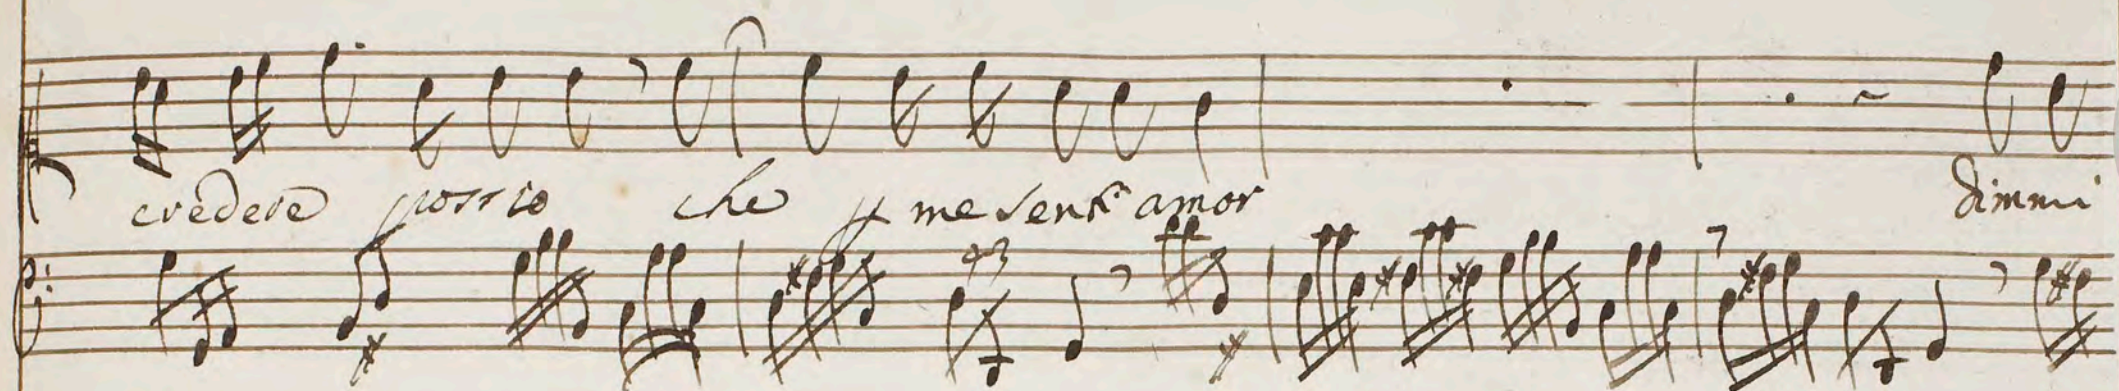 credere poss'io che p me sent' amor dimmi
43